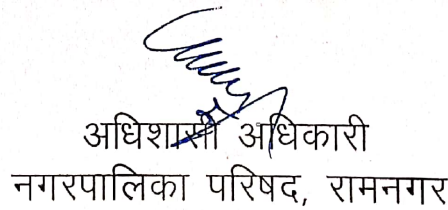 अधिशासी अधिकारी
नगरपालिका परिषद, रामनगर